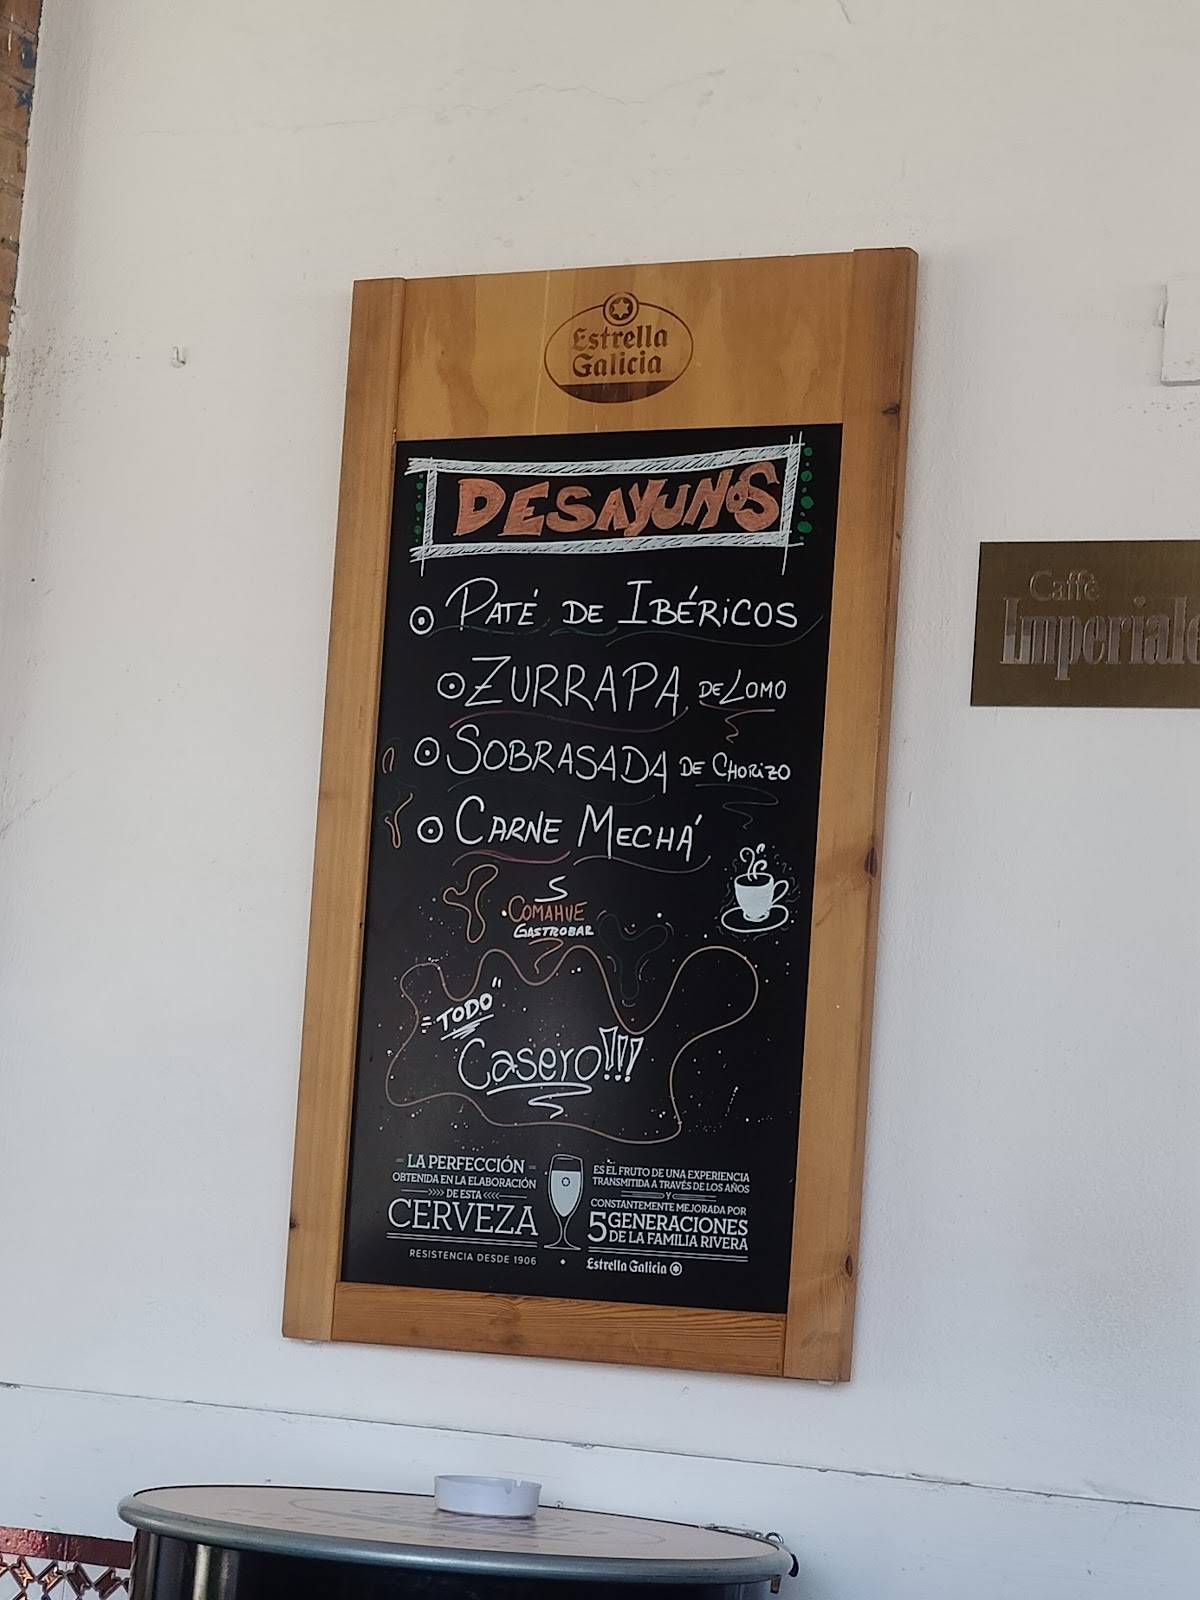 Estrella
Galicia
DESAYUNOS
PATÉ DE IBÉRICOS
ZURRAPA DE LOMO
SOBRASADA DE CHORIZO
CARNE MECHÁ
COMAHUE
GASTROBAR
"TODO"
Casero!!!
LA PERFECCIÓN
OBTENIDA EN LA ELABORACIÓN
DE ESTA
CERVEZA
RESISTENCIA DESDE 1906
ES EL FRUTO DE UNA EXPERIENCIA
TRANSMITIDA A TRAVÉS DE LOS AÑOS
Y
CONSTANTEMENTE MEJORADA POR
5 GENERACIONES
DE LA FAMILIA RIVERA
Estrella Galicia
Caffè
Imperiale